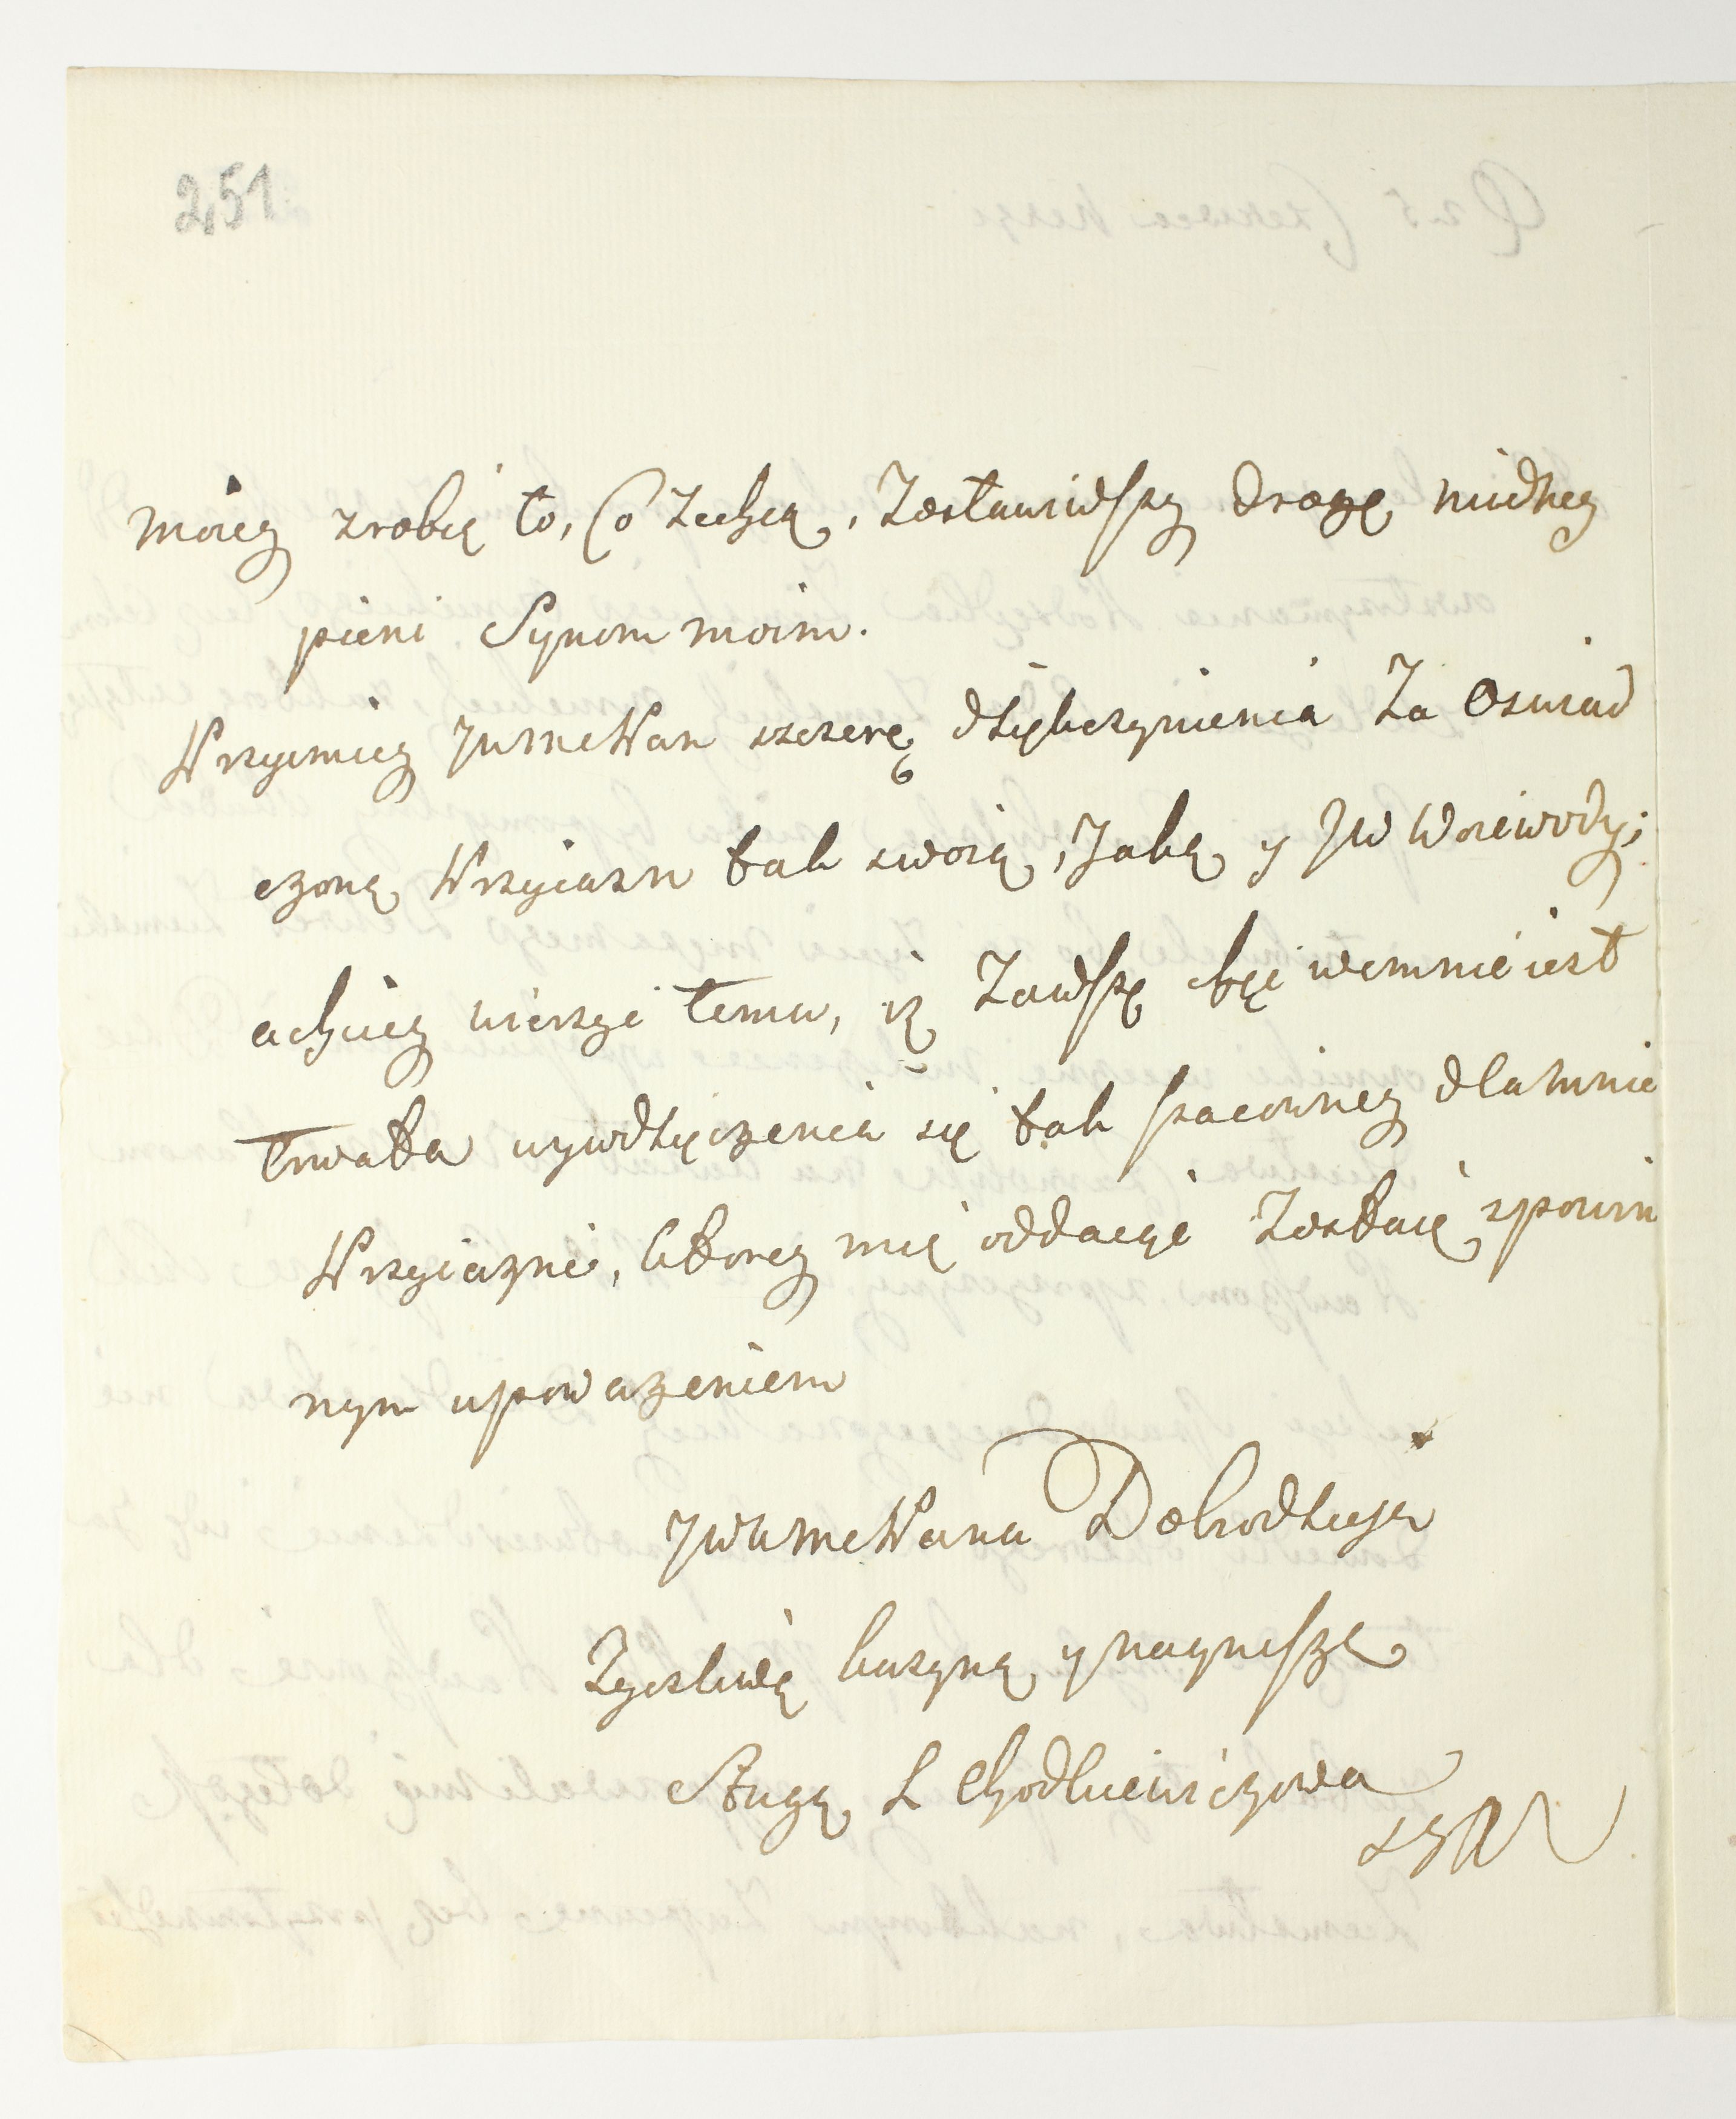 251
moiey zrobię to, Co Zechcą, Zostawiwszy drogę niedney
pieni Synom moim.
Przyimiey JWmcPan szczerę dziękczynienia Za oswiad
czoną Przyiazn tak swoią, Jaką y JW Woiewody;
achciey wierzyć temu, iż Zawsze chęć wemnie iest
trwała wywdzięczenia się tak szacowney dlamnie
Przyiazni, ktorey mię oddaiąc Zostaię zpowin
nym uposzażeniem
JWWmcPana Dobrodzieja
Zyczliwą kuzyną y naynisszą
Sługą L Chodkiewiczowa